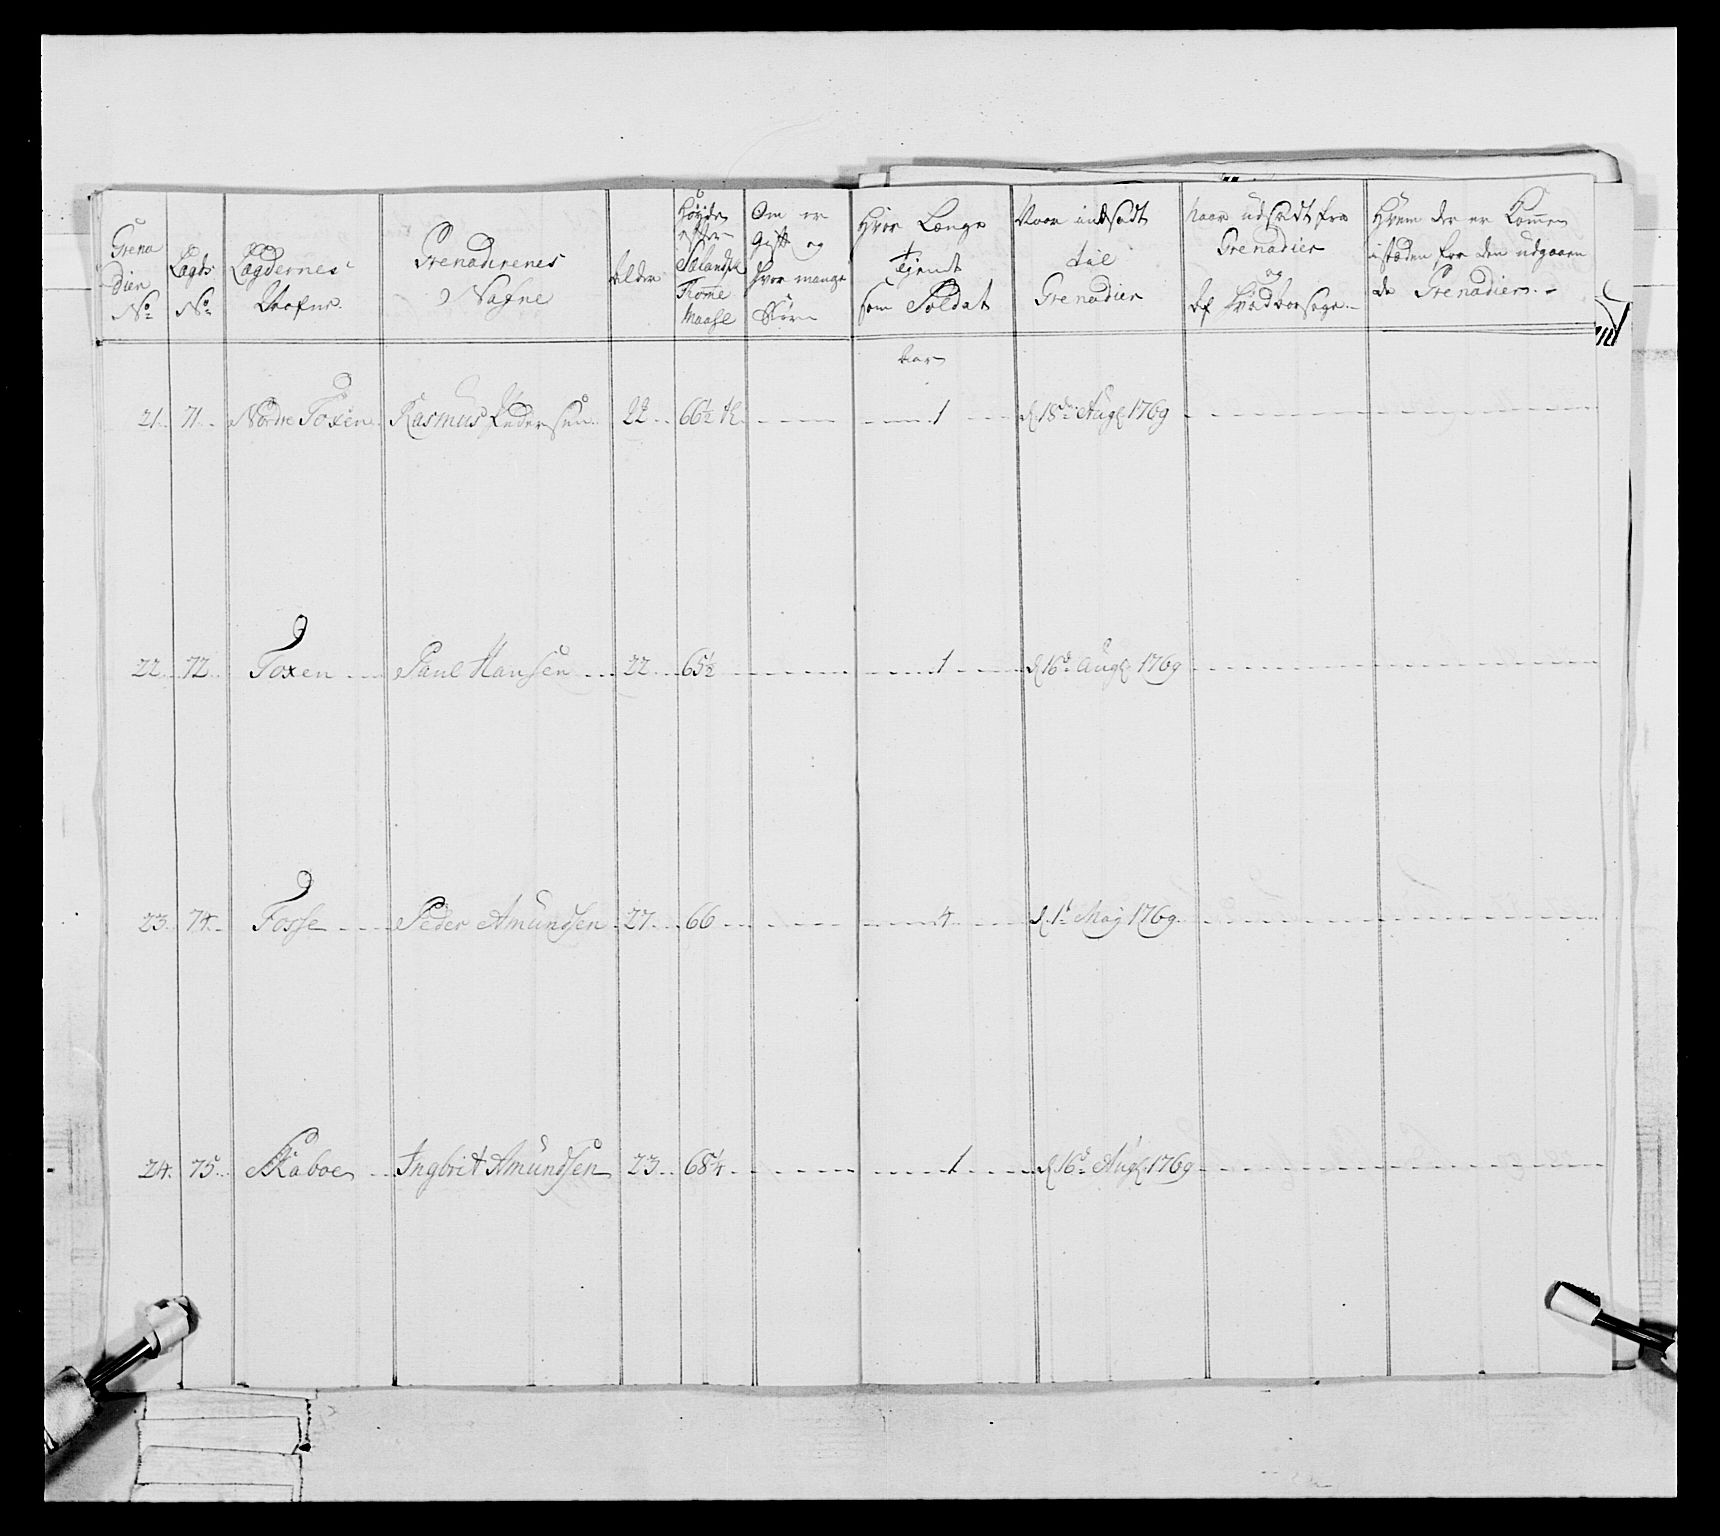 Grena
dier
No
Lægds
No
Lægdernes
Nafne
Grenadirenes
Nafne
Alder
Høyde
efter
Sælandsk
Komme
Maahl
Om er
Gift og
hvor mange
Børn
Hvor Længe
tjent
som Soldat
Naar indsadt
til
Grenadier
Naar udsadt fra
Grenadier
og
af
Hvem der er Kommen
isteden for den udgaaen
de Grenadier
aar
21 71 Nordre Toxen Rasmus Pedersen 22 66½ 1 d 18de Aug 1769
22 72 Toxen Paul Hansen 22 65½ 1 d 16de Aug 1769
23 74 Fosse Peder Amundsen 27 66 4 d 1 May 1769
24 75 Skaboe Ingbrit Amundsen 23 68¼ 1 d 16de Aug 1769